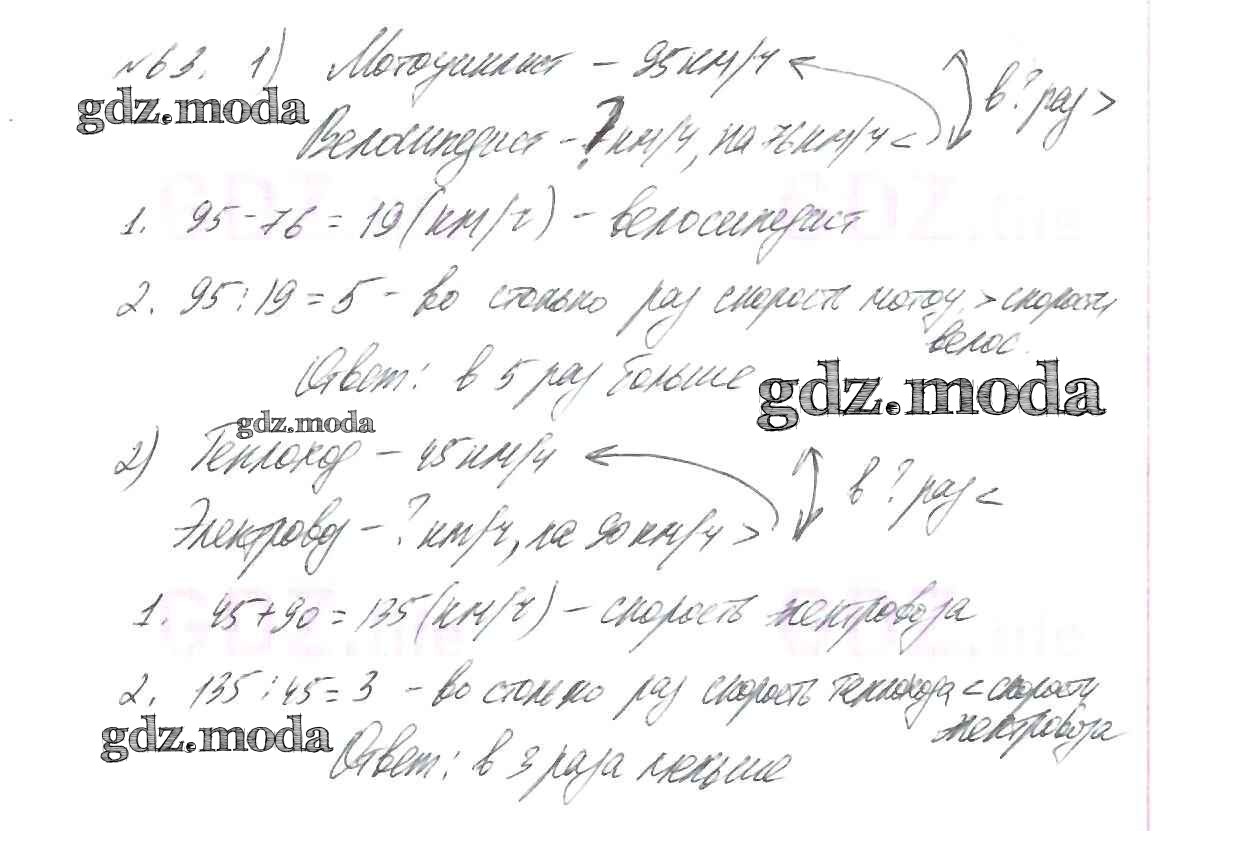 №63. 1) Мотоциклист – 95 км/ч
в ? раз >
gdz.moda
Велосипедист – ? км/ч, на 76 км/ч <
GDZ.me GDZ.me
1. 95 – 76 = 19 (км/ч) – велосипедист
2. 95 : 19 = 5 – во столько раз скорость мотоц. > скорости
велос.
Ответ: в 5 раз больше
gdz.moda
gdz.moda
2) Теплоход – 45 км/ч
в ? раз <
Электровоз – ? км/ч, на 90 км/ч >
GDZ.me GDZ.me
1. 45 + 90 = 135 (км/ч) – скорость электровоза
2. 135 : 45 = 3 – во столько раз скорость теплохода < скорости
электровоза
gdz.moda
Ответ: в 3 раза меньше